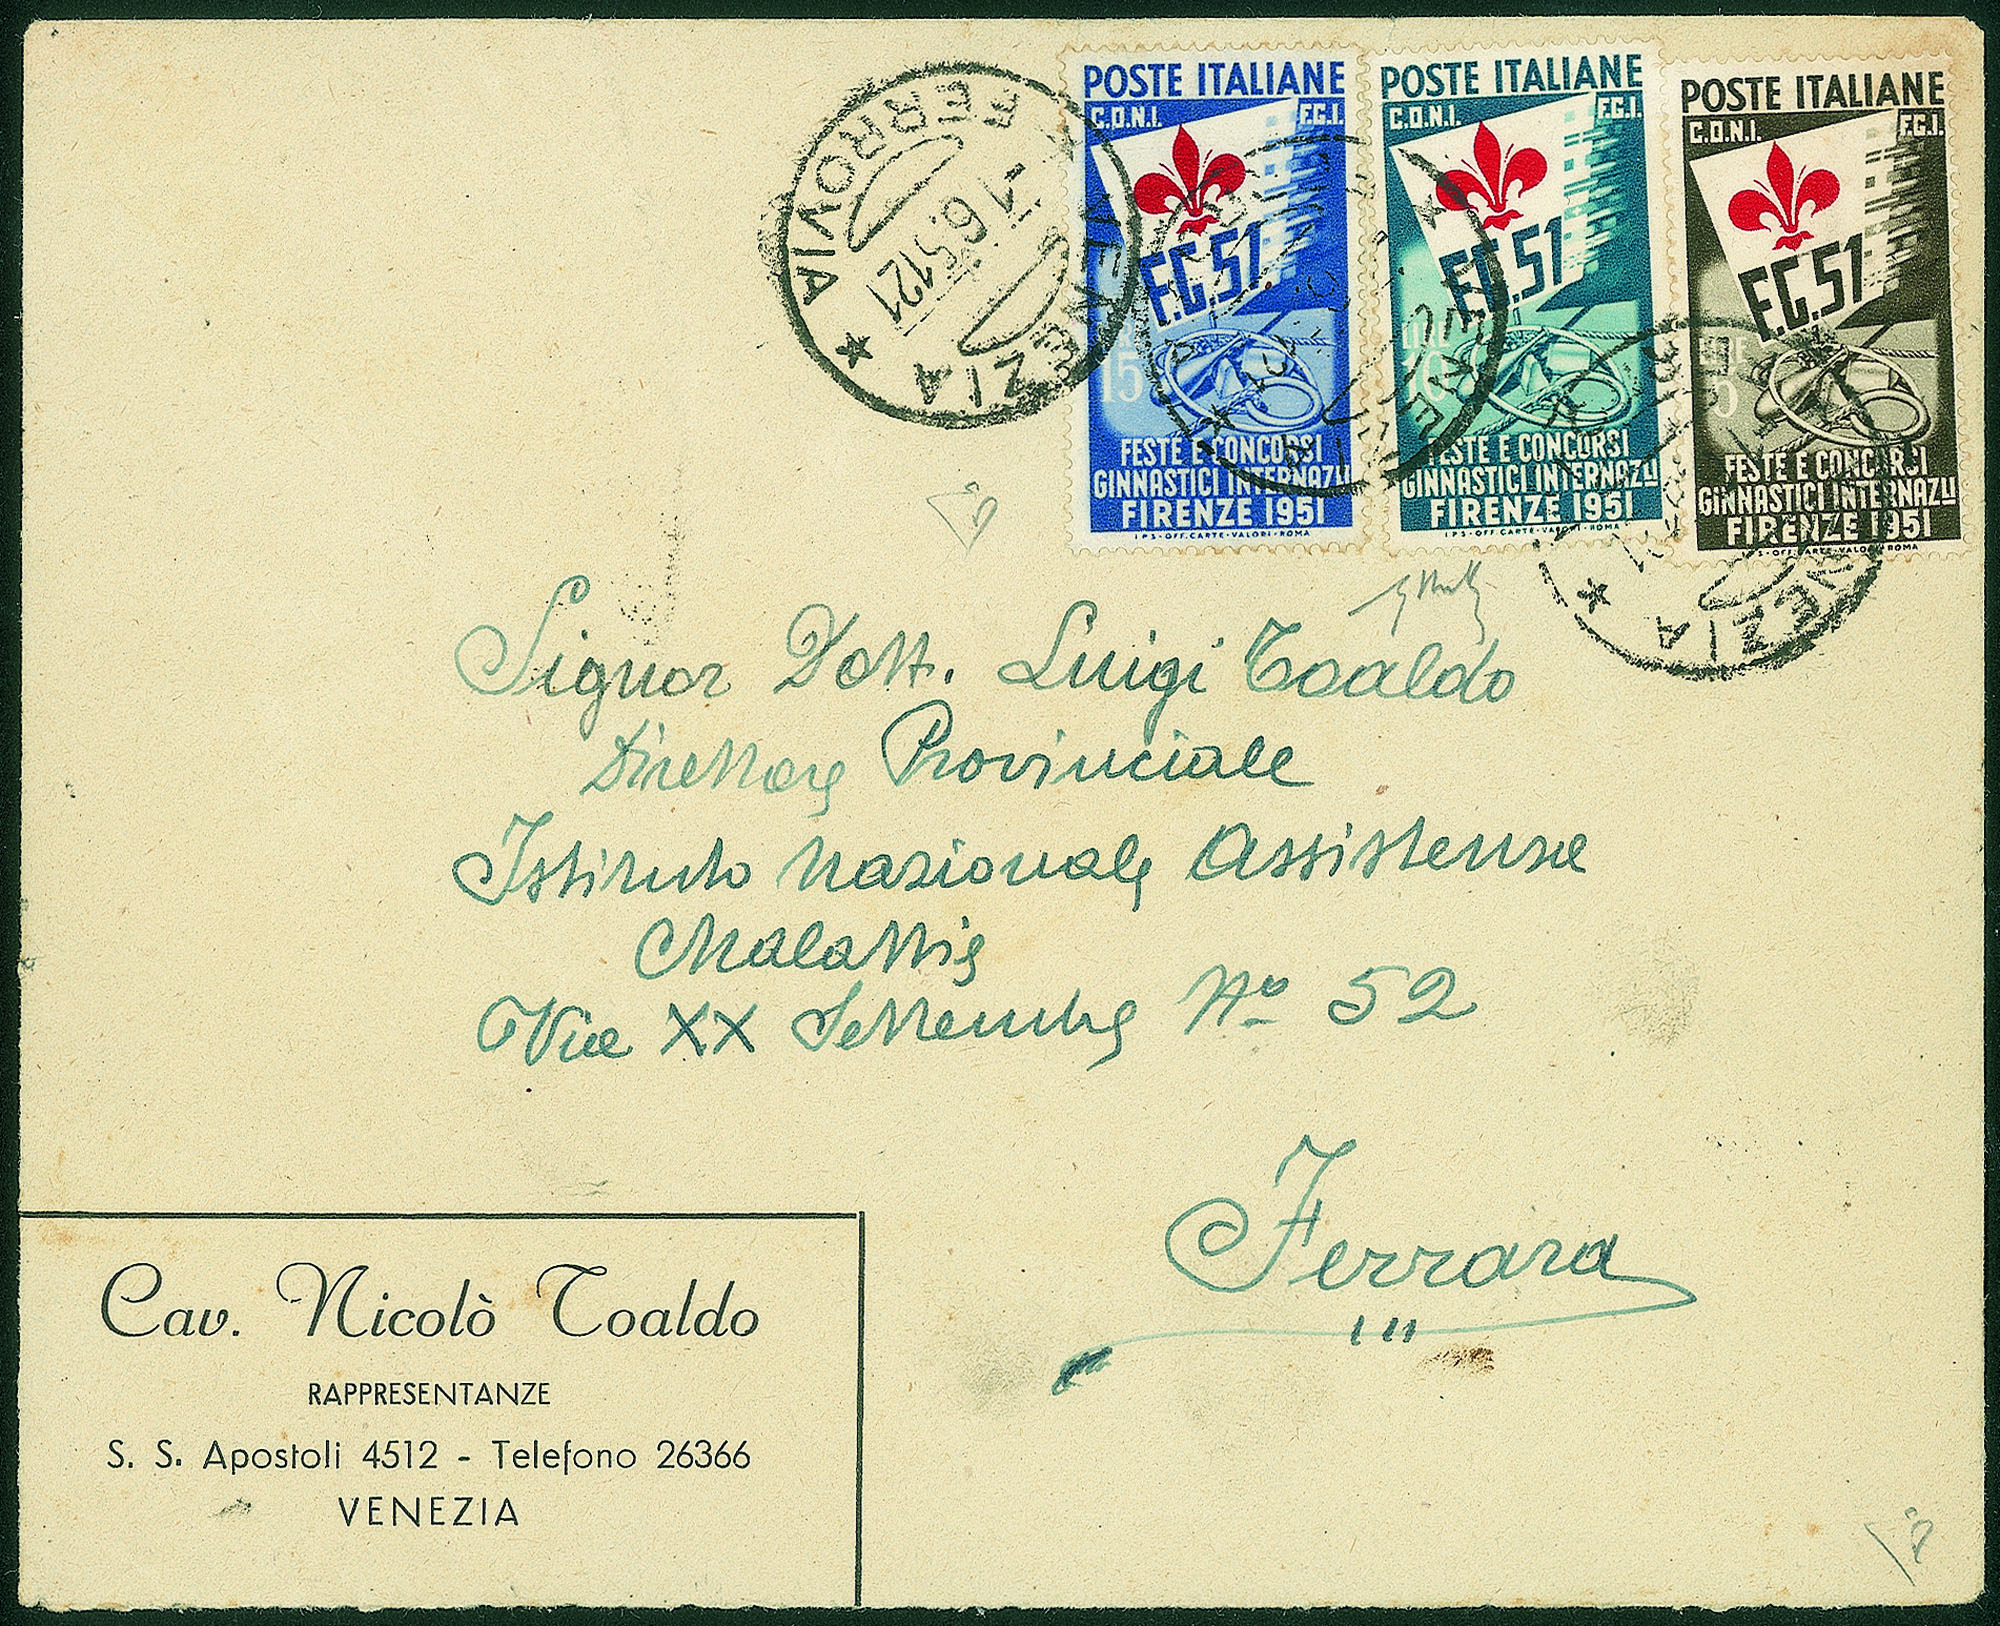 POSTE ITALIANE
C.O.N.I. F.G.I.
F.G.51
LIRE
15
FESTE E CONCORSI
GINNASTICI INTERNAZLI
FIRENZE 1951
I P S - OFF. CARTE - VALORI - ROMA
POSTE ITALIANE
C.O.N.I. F.G.I.
F.G.51
LIRE
10
FESTE E CONCORSI
GINNASTICI INTERNAZLI
FIRENZE 1951
I P S - OFF. CARTE - VALORI - ROMA
POSTE ITALIANE
C.O.N.I. F.G.I.
F.G.51
LIRE
5
FESTE E CONCORSI
GINNASTICI INTERNAZLI
FIRENZE 1951
I P S - OFF. CARTE - VALORI - ROMA
VENEZIA
FERROVIA
-1.6.51 21
VENEZIA
VENEZIA
Signor Dott. Luigi Toaldo
Direttore Provinciale
Istituto Nazionale Assistenza
Malattie
Via XX Settembre No 52
Ferrara
Cav. Nicolò Toaldo
RAPPRESENTANZE
S. S. Apostoli 4512 - Telefono 26366
VENEZIA